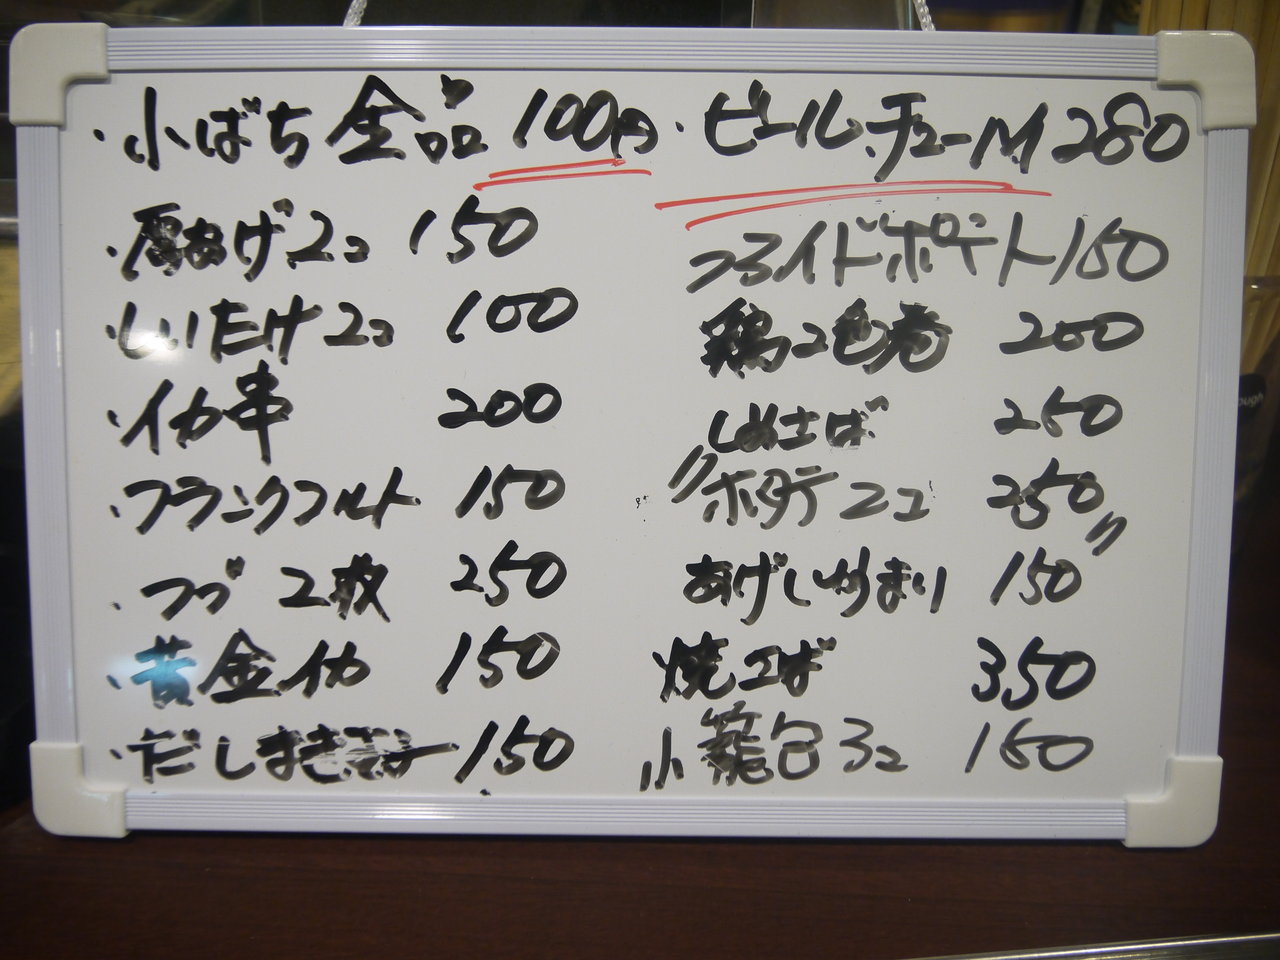 ・小ばち全品 100円
・厚あげ2コ 150
・しいたけ2コ 100
・イカ串 200
・フランクフルト 150
・つぶ 2枚 250
・黄金イカ 150
・だしまき 150
・ビール、チューM 280
フライドポテト 150
鶏2色巻 200
しめさば 250
〃ホタテ2コ 250〃
あげしゅうまい 150
焼そば 350
小籠包3コ 150